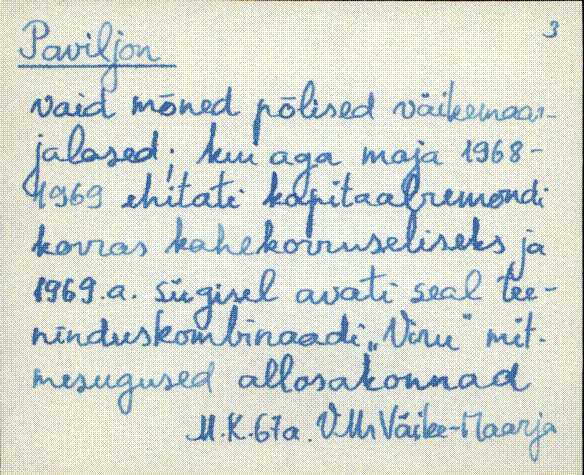 3
Paviljon
vaid mõned põlised väikemaar-
jalased; kui aga maja 1968-
1969 ehitati kapitaalremondi
korras kahekorruseliseks ja
1969.a. sügisel avati seal tee-
ninduskombinaadi „Viru" mit-
mesugused allosakonnad
M.K. 67a. VMr Väike-Maarja